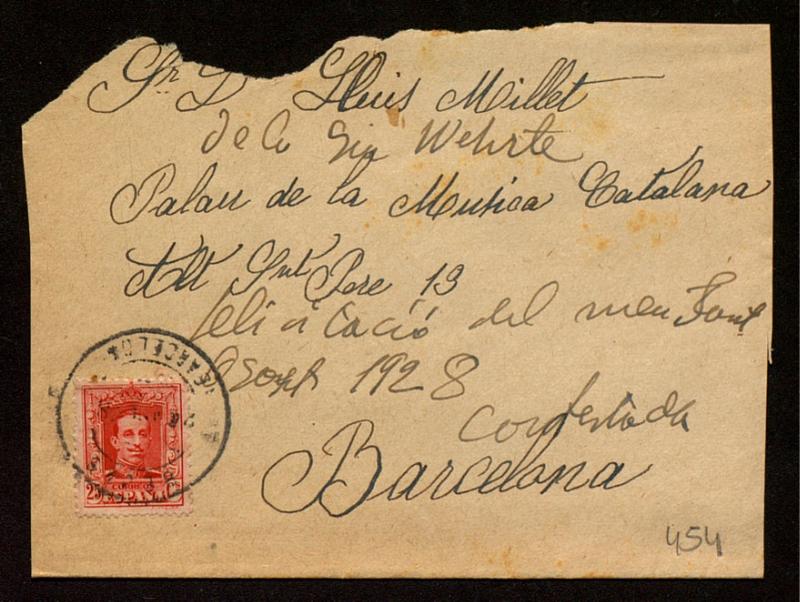 Sr D Lluis Millet
de la Sra Wehrle
Palau de la Musica Catalana
Alt Snt Pere 13
felicitació del meu Sant
Agost 1928
BARCELONA
contestada
CORREOS
25 ESPAÑA Cs
Barcelona
454